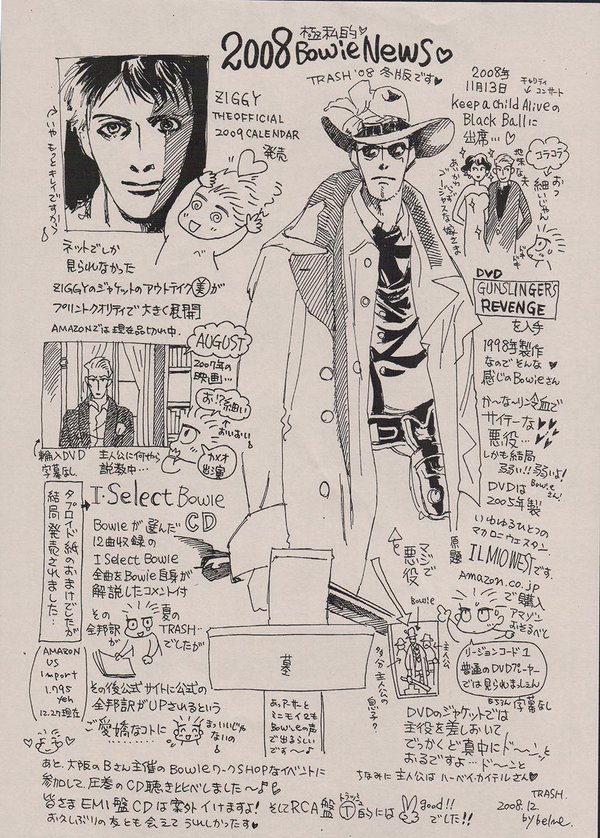 極私的♡
2008 Bowie News♡
TRASH '08 冬版です♥
ZIGGY
THE OFFICIAL
2009 CALENDAR
発売
ネットでしか
見られなかった
ZIGGYのジャケットのアウトテイク(美)が
プリントクオリティで大きく展開
AMAZONでは現在品切れ中.
2008年
11月13日
チャリティ
コンサート
Keep a child Aliveの
Black Ballに
出席…♡
地味な夫
コラコラ
おっ
細いじゃ
ドキドキ
DVD
GUNSLINGERS
REVENGE
を入手
1998年製作
なのでそんな
感じのBowieさん
か〜な〜り冷血で
サイテーな
悪役…♥♥
しかも結局
弱い!!弱いよ!
Bowieさん!
DVDは
2005年製
いわゆるひとつの
マカロニウェスタン.
原題
IL MIO WESTです.
Amazon.co.jp
で購入
アマゾン
おそるべし
AUGUST
2007年の
映画…
お!?細い
おいおい
カメオ
出演
輸入DVD
字幕なし
主人公に何やら
説教中…
タブロイド紙のおまけでしたが
結局発売されました…
I・Select Bowie
CD
Bowieが選んだ
12曲収録の
I Select Bowie
全曲をBowie自身が
解説したコメント付
その
全邦訳が
夏の
TRASH…
でしたが
AMAZON
US
import
1.795
yen
12.27現在
その後公式サイトに公式の
全邦訳がUPされるという
ご愛嬌なコトに
まぁいいじゃ
ないの
マジで
悪役
墓
あ、アーサーと
ミニモイ2も
Bowieの声
で出るらしい
です〜〜♪
Bowie
主人公
多分主人公の
息子?
リージョンコード1
普通のDVDプレーヤー
では見られましぇん
もちろん字幕なし
DVDのジャケットでは
主役を差しおいて
でっかくど真中にド〜〜ンと
おるですよ…ド〜ンと
ちなみに主人公はハーベイ・カイテルさん♥
あと、大阪のBさん主催のBowieワークSHOPなイベントに
参加して、圧巻のCD聴き比べしました〜♪
皆さまEMI盤CDは案外イけますよ! そしてRCA盤
トラッシュ
(T)的には good!!
でした!!
お久しぶりの友とも会えてうれしかったす♥
TRASH.
2008.12.